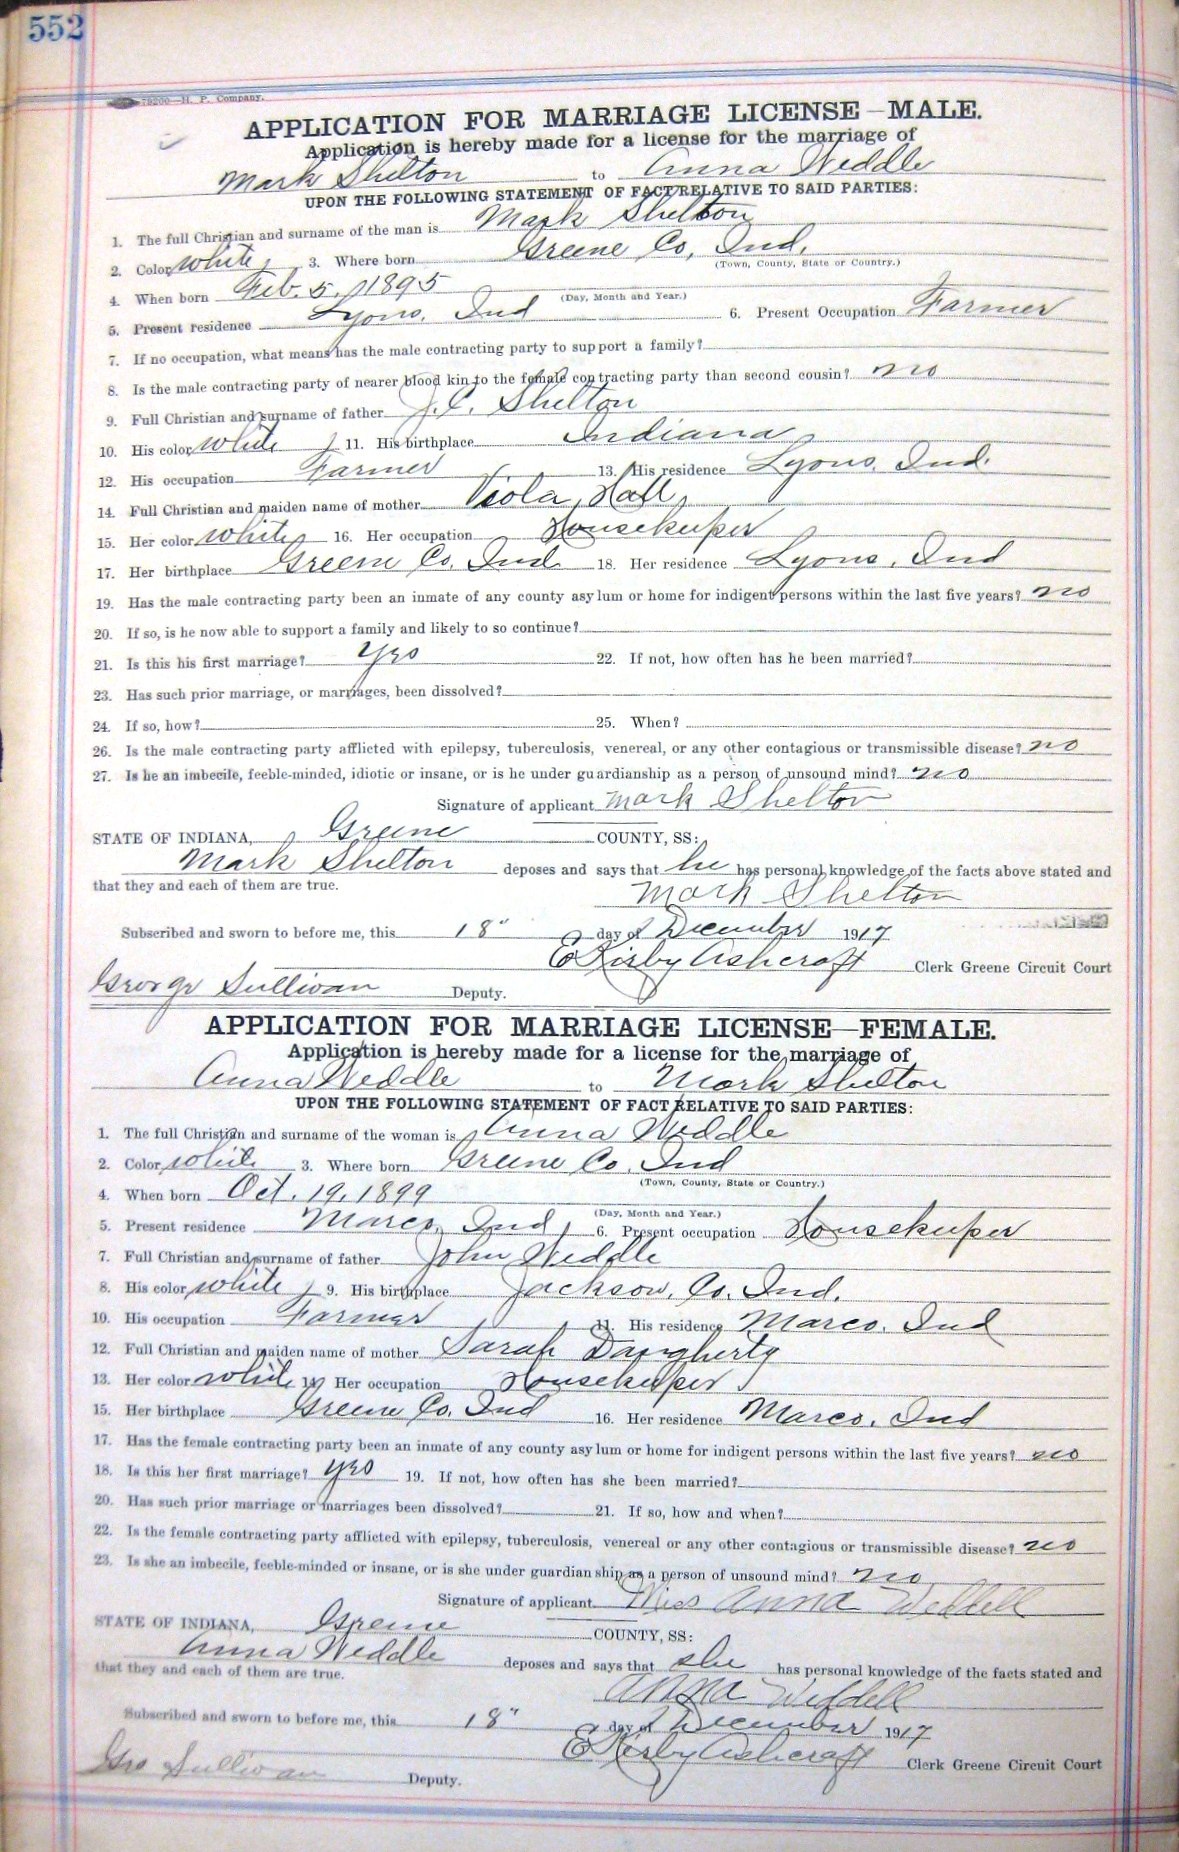 552
79200—H. P. Company.
APPLICATION FOR MARRIAGE LICENSE—MALE.
Application is hereby made for a license for the marriage of
Mark Shelton to Anna Weddle
UPON THE FOLLOWING STATEMENT OF FACT RELATIVE TO SAID PARTIES:
1. The full Christian and surname of the man is Mark Shelton
2. Color white 3. Where born Greene Co, Ind.
(Town, County, State or Country.)
4. When born Feb. 5, 1895
(Day, Month and Year.)
5. Present residence Lyons, Ind 6. Present Occupation Farmer
7. If no occupation, what means has the male contracting party to support a family?
8. Is the male contracting party of nearer blood kin to the female contracting party than second cousin? no
9. Full Christian and surname of father J.C. Shelton
10. His color white 11. His birthplace Indiana
12. His occupation Farmer 13. His residence Lyons, Ind.
14. Full Christian and maiden name of mother Viola Hall
15. Her color white 16. Her occupation Housekeeper
17. Her birthplace Greene Co. Ind. 18. Her residence Lyons, Ind
19. Has the male contracting party been an inmate of any county asylum or home for indigent persons within the last five years? no
20. If so, is he now able to support a family and likely to so continue?
21. Is this his first marriage? yes 22. If not, how often has he been married?
23. Has such prior marriage, or marriages, been dissolved?
24. If so, how? 25. When?
26. Is the male contracting party afflicted with epilepsy, tuberculosis, venereal, or any other contagious or transmissible disease? no
27. Is he an imbecile, feeble-minded, idiotic or insane, or is he under guardianship as a person of unsound mind? no
Signature of applicant Mark Shelton
STATE OF INDIANA, Greene COUNTY, SS:
Mark Shelton deposes and says that he has personal knowledge of the facts above stated and
that they and each of them are true. Mark Shelton
Subscribed and sworn to before me, this 18" day of December 1917
E Kirby Ashcraft Clerk Greene Circuit Court
George Sullivan Deputy.
APPLICATION FOR MARRIAGE LICENSE—FEMALE.
Application is hereby made for a license for the marriage of
Anna Weddle to Mark Shelton
UPON THE FOLLOWING STATEMENT OF FACT RELATIVE TO SAID PARTIES:
1. The full Christian and surname of the woman is Anna Weddle
2. Color white 3. Where born Greene Co, Ind
(Town, County, State or Country.)
4. When born Oct. 19, 1899
(Day, Month and Year.)
5. Present residence Marco, Ind 6. Present occupation Housekeeper
7. Full Christian and surname of father John Weddle
8. His color white 9. His birthplace Jackson, Co. Ind.
10. His occupation Farmer 11. His residence Marco, Ind
12. Full Christian and maiden name of mother Sarah Daugherty
13. Her color white 14 Her occupation Housekeeper
15. Her birthplace Greene Co. Ind 16. Her residence Marco, Ind
17. Has the female contracting party been an inmate of any county asylum or home for indigent persons within the last five years? no
18. Is this her first marriage? yes 19. If not, how often has she been married?
20. Has such prior marriage or marriages been dissolved? 21. If so, how and when?
22. Is the female contracting party afflicted with epilepsy, tuberculosis, venereal or any other contagious or transmissible disease? no
23. Is she an imbecile, feeble-minded or insane, or is she under guardianship as a person of unsound mind? no
Signature of applicant Miss Anna Weddell
STATE OF INDIANA, Greene COUNTY, SS:
Anna Weddle deposes and says that she has personal knowledge of the facts stated and
that they and each of them are true. Anna Weddell
Subscribed and sworn to before me, this 18" day of December 1917
E Kirby Ashcraft Clerk Greene Circuit Court
Geo Sullivan Deputy.